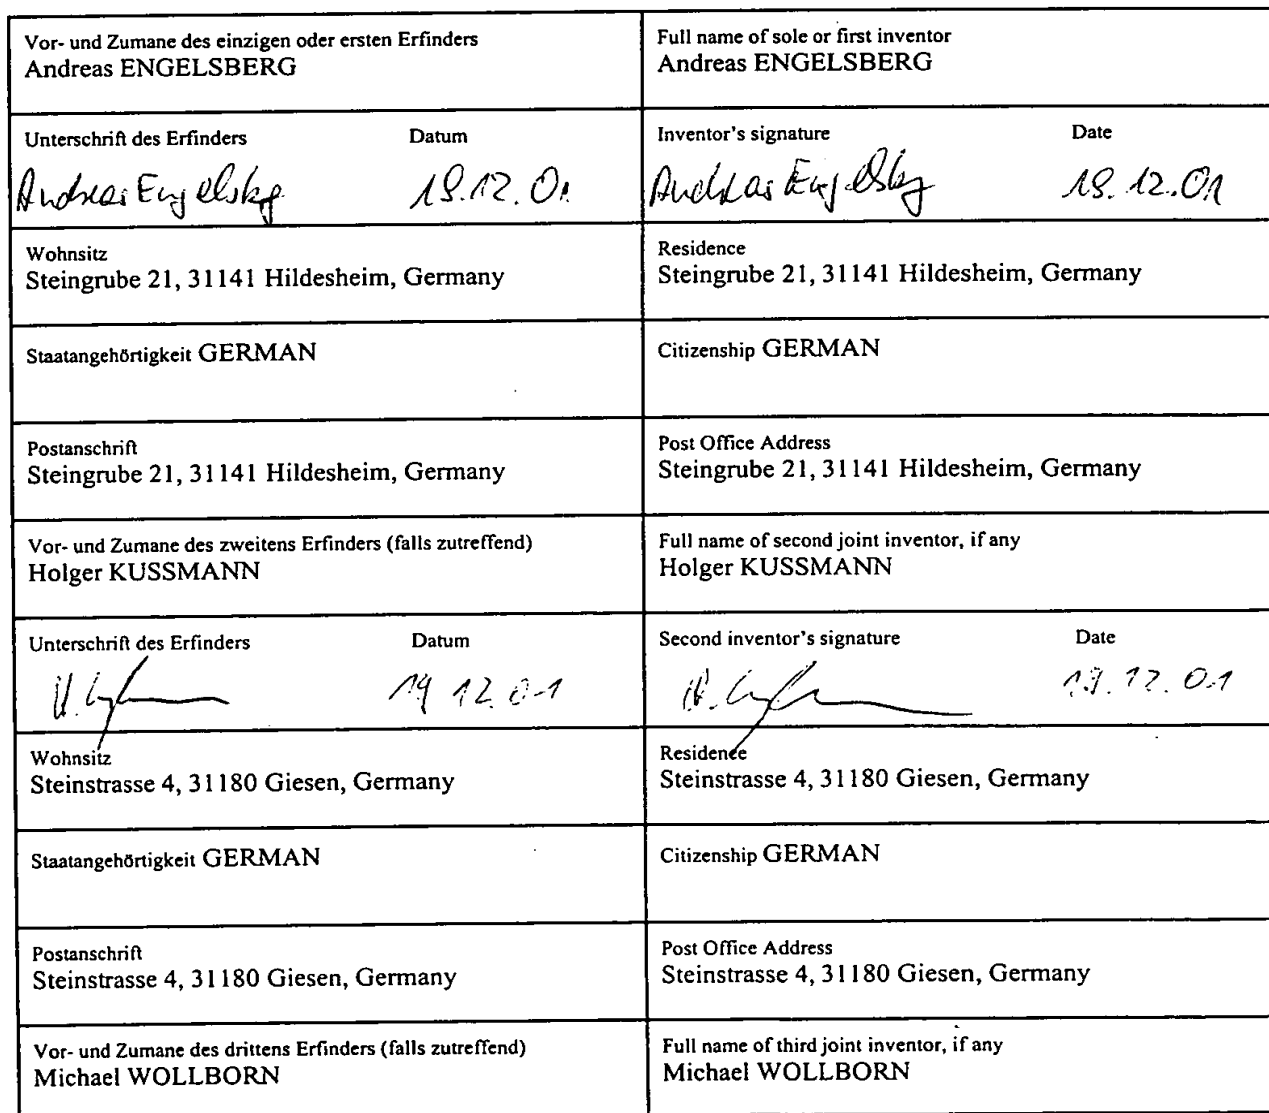 Vor- und Zumane des einzigen oder ersten Erfinders
Andreas ENGELSBERG
Full name of sole or first inventor
Andreas ENGELSBERG
Unterschrift des Erfinders Datum
Andreas Engelsbg
Inventor's signature Date
Andreas Engelsbg
Wohnsitz
Steingrube 21, 31141 Hildesheim, Germany
Residence
Steingrube 21, 31141 Hildesheim, Germany
Staatangehörtigkeit GERMAN
Citizenship GERMAN
Postanschrift
Steingrube 21, 31141 Hildesheim, Germany
Post Office Address
Steingrube 21, 31141 Hildesheim, Germany
Vor- und Zumane des zweitens Erfinders (falls zutreffend)
Holger KUSSMANN
Full name of second joint inventor, if any
Holger KUSSMANN
Unterschrift des Erfinders Datum
19 12.01
Second inventor's signature Date
19.12.01
Wohnsitz
Steinstrasse 4, 31180 Giesen, Germany
Residence
Steinstrasse 4, 31180 Giesen, Germany
Staatangehörtigkeit GERMAN
Citizenship GERMAN
Postanschrift
Steinstrasse 4, 31180 Giesen, Germany
Post Office Address
Steinstrasse 4, 31180 Giesen, Germany
Vor- und Zumane des drittens Erfinders (falls zutreffend)
Michael WOLLBORN
Full name of third joint inventor, if any
Michael WOLLBORN